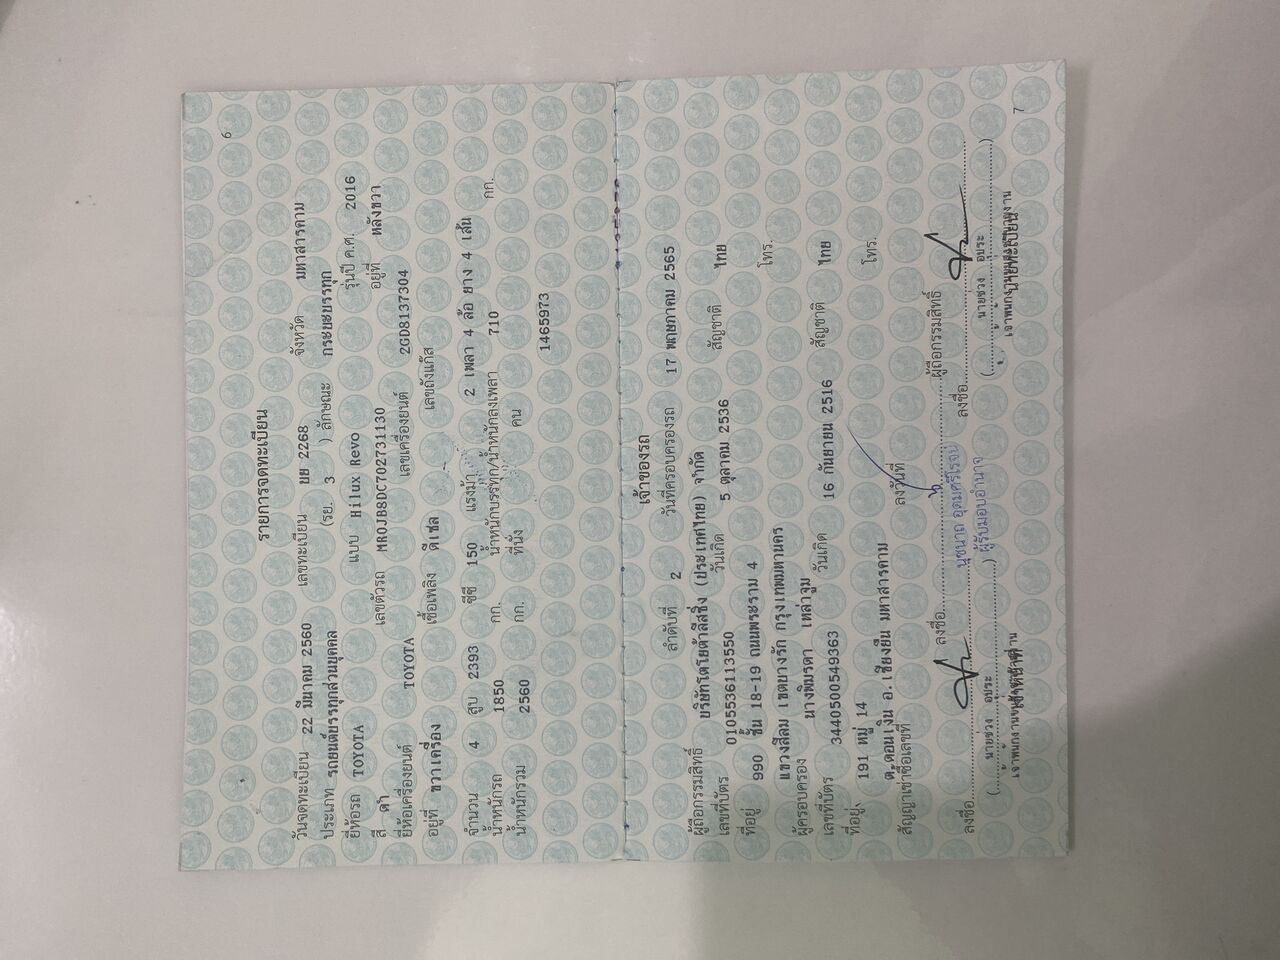 6
รายการจดทะเบียน
วันจดทะเบียน 22 มีนาคม 2560 เลขทะเบียน ยย 2268 จังหวัด มหาสารคาม
ประเภท รถยนต์บรรทุกส่วนบุคคล (รย. 3 ) ลักษณะ กระบะบรรทุก
ยี่ห้อรถ TOYOTA แบบ Hilux Revo รุ่นปี ค.ศ. 2016
สี ดำ เลขตัวรถ MR0JB8DC702731130 อยู่ที่ หลังขวา
ยี่ห้อเครื่องยนต์ TOYOTA เลขเครื่องยนต์ 2GD8137304
อยู่ที่ ขวาเครื่อง เชื้อเพลิง ดีเซล เลขถังแก๊ส
จำนวน 4 สูบ 2393 ซีซี 150 แรงม้า 2 เพลา 4 ล้อ ยาง 4 เส้น
น้ำหนักรถ 1850 กก. น้ำหนักบรรทุก/น้ำหนักลงเพลา 710 กก.
น้ำหนักรวม 2560 กก. ที่นั่ง คน
1465973
เจ้าของรถ
ลำดับที่ 2 วันที่ครอบครองรถ 17 พฤษภาคม 2565
ผู้ถือกรรมสิทธิ์ บริษัทโตโยต้าลีสซิ่ง (ประเทศไทย) จำกัด
เลขที่บัตร 0105536113550 วันเกิด 5 ตุลาคม 2536 สัญชาติ ไทย
ที่อยู่ 990 ชั้น 18-19 ถนนพระราม 4 โทร.
แขวงสีลม เขตบางรัก กรุงเทพมหานคร
ผู้ครอบครอง นางพิมรดา เหล่าจูม
เลขที่บัตร 3440500549363 วันเกิด 16 กันยายน 2516 สัญชาติ ไทย
ที่อยู่ 191 หมู่ 14 โทร.
ต.ดอนเงิน อ.เชียงยืน มหาสารคาม
สัญญาเช่าซื้อเลขที่ ลงวันที่
ลงชื่อ ผู้ถือกรรมสิทธิ์
ผู้รับมอบอำนาจ
ลงชื่อ ลงชื่อ
( นายช่วง อุประ ) ( นายช่วง อุประ )
เจ้าหน้าที่ นายทะเบียน
7